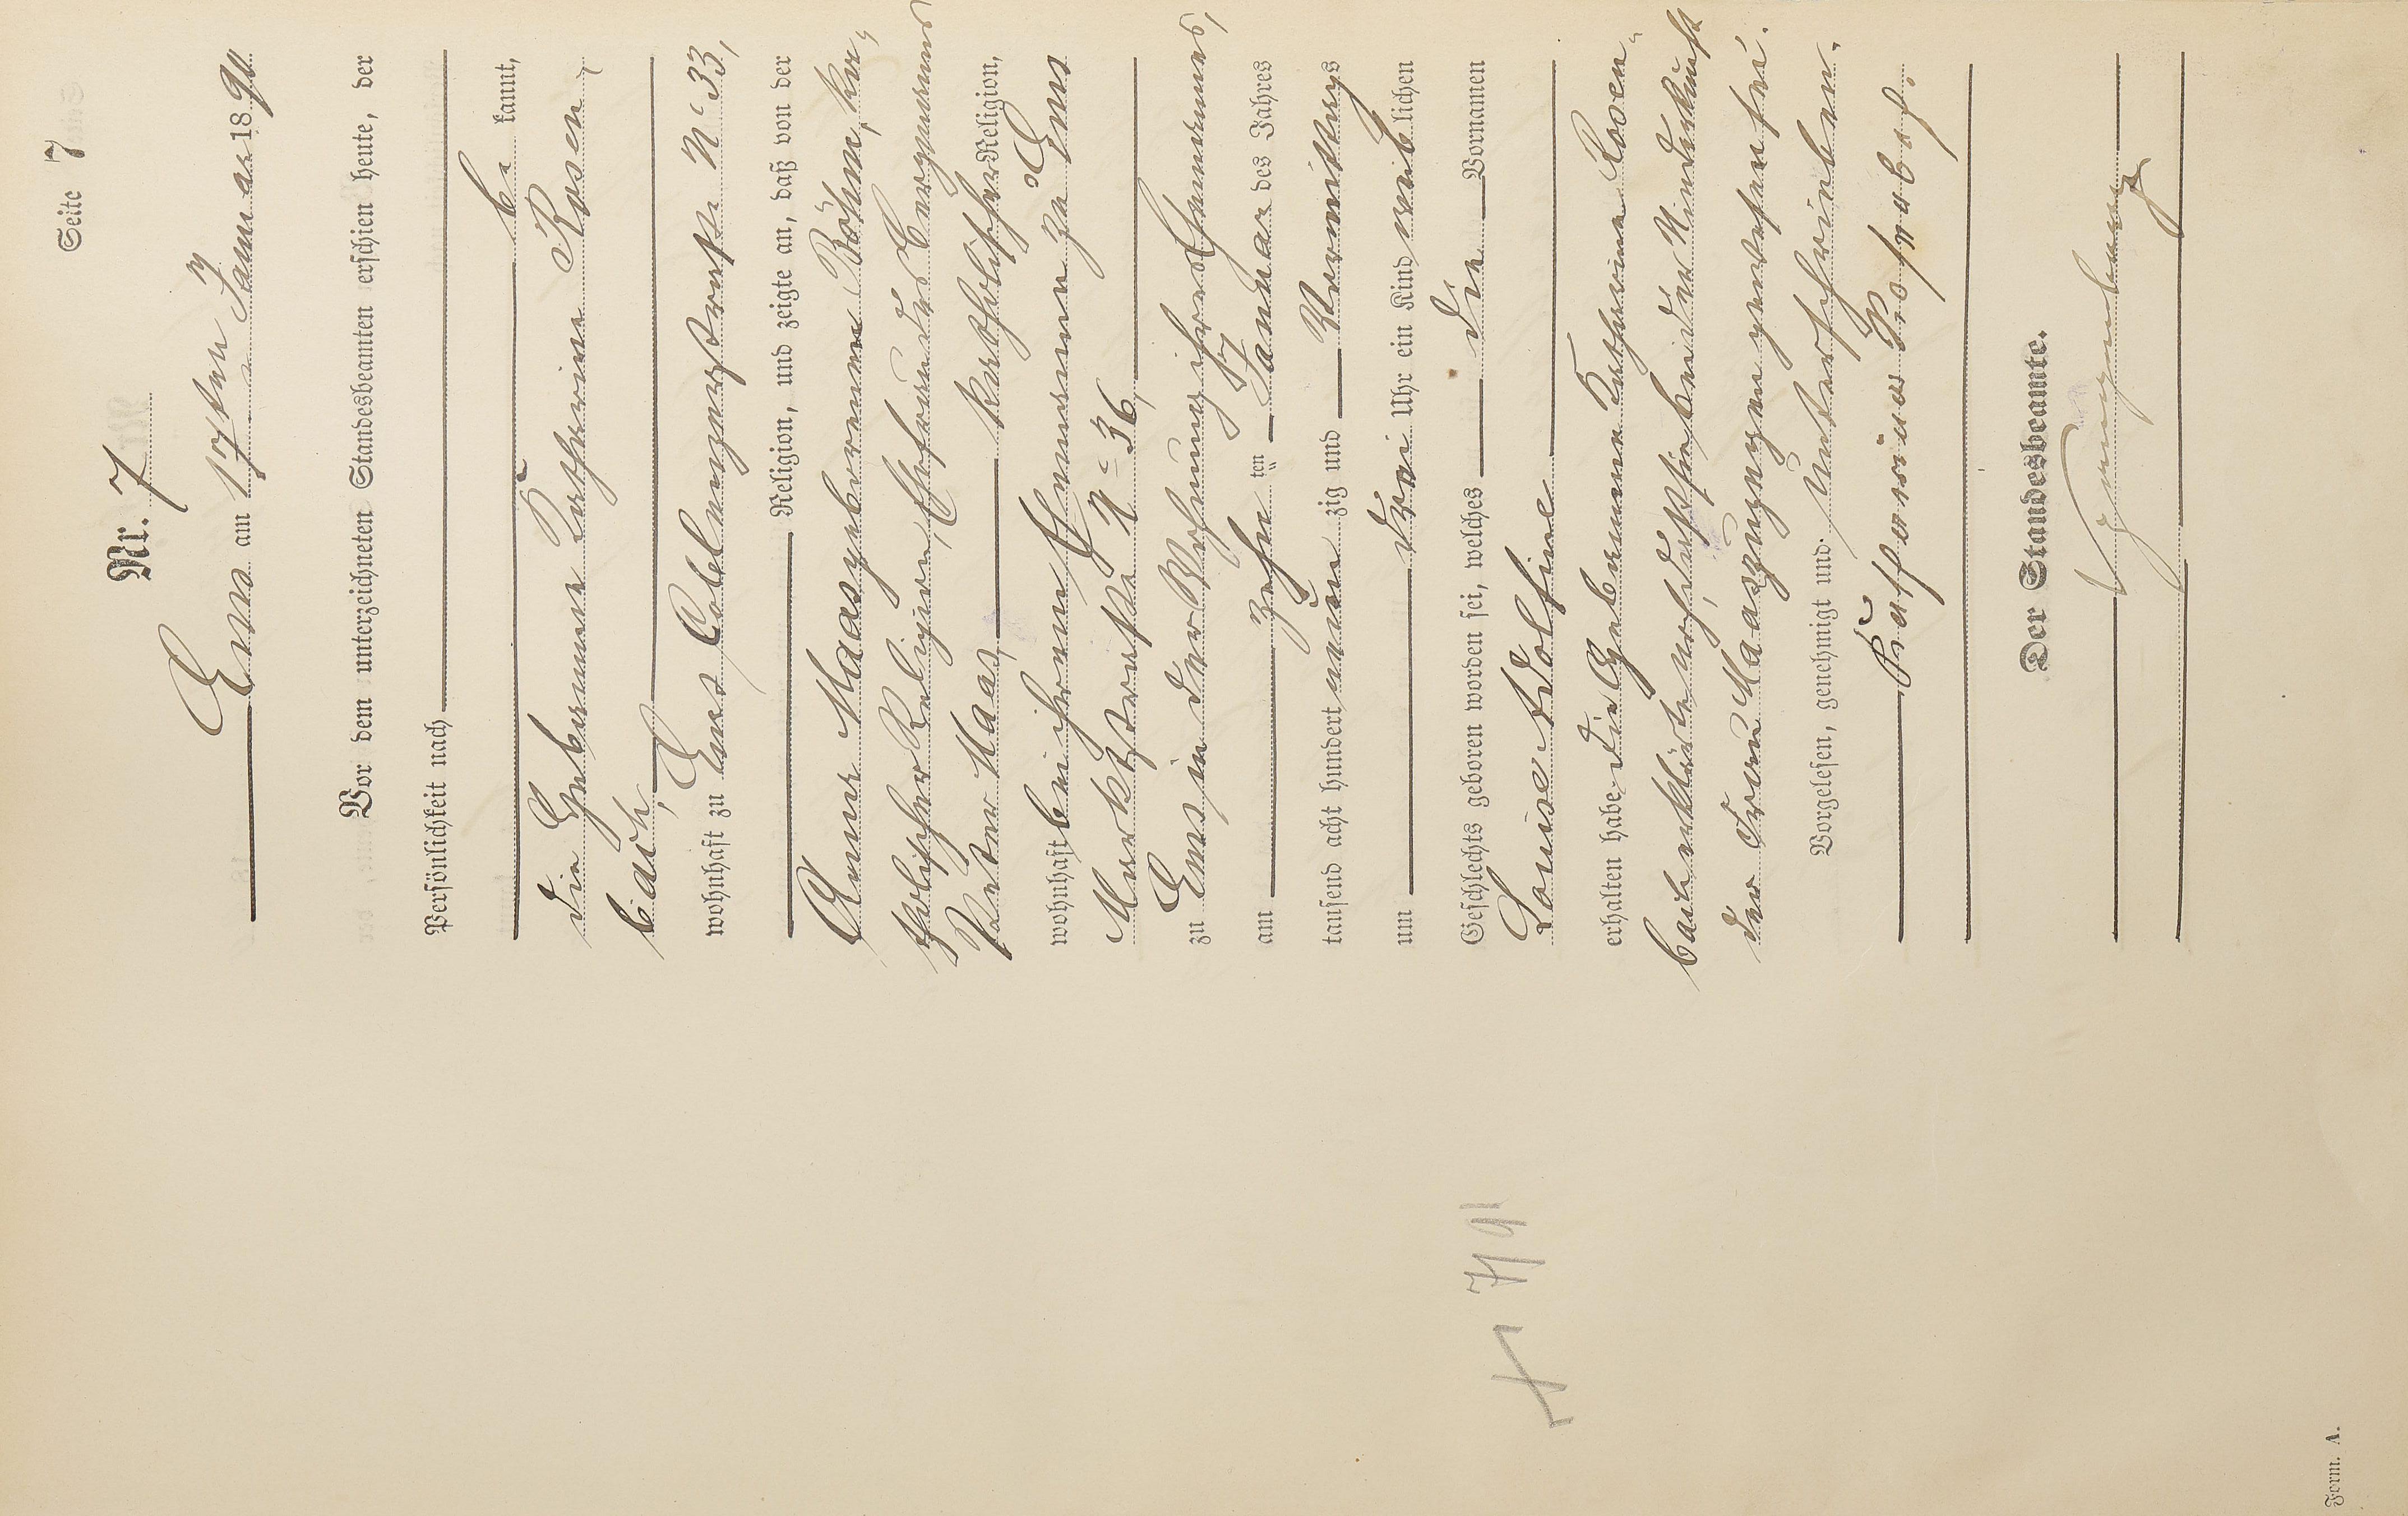 Seite 7
Nr. 7
Ems am 17ten Januar 1891
Vor dem unterzeichneten Standesbeamten erschien heute, der
Persönlichkeit nach
be kannt,
die Hebamme Katharine Rosen-
bach,
wohnhaft zu Ems Coblenzerstraße No 33,
Religion, und zeigte an, daß von der
Anna Maas geborenen Böhm, ka-
tholischer Religion, Ehefrau des Bergmanns
Peter Maas, katholischer Religion,
wohnhaft bei ihrem Ehemanne zu Ems
Marktstraße No 36,
zu Ems in der Wohnung ihres Ehemannes,
am zehn ten Januar des Jahres
tausend acht hundert neun zig und Vormittags
um drei Uhr ein Kind weib lichen
Geschlechts geboren worden sei, welches die Vornamen
Louise Adolfine
erhalten habe. Die Hebamme Katharine Rosen-
bach erklärte noch, daß sie bei der Niederkunft
der Frau Maas zugegen gewesen sei.
Vorgelesen, genehmigt und unterschrieben.
Katharina Rosenbach.
Der Standesbeamte.
+ 7/91
Form. A.